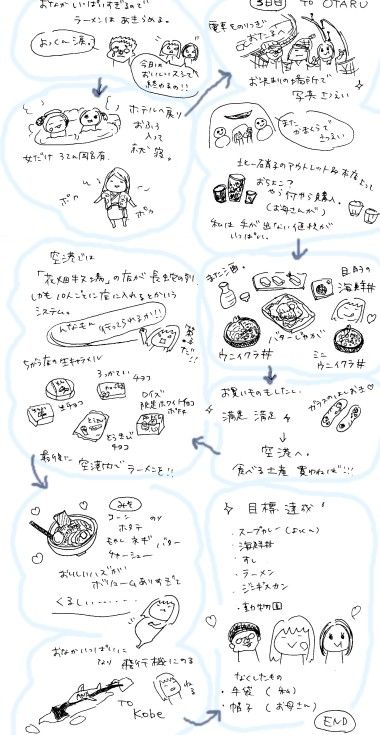 おなかいっぱいすぎるので
ラーメンはあきらめる。
よっくん涙。
今日の
おいしいスシで
終わるの!!
ホテルへ戻り
おふろ
入って
就寝。
女だけ
ポッ
ポッ
3日目 TO OTARU
電車をのりつぎ
おたるへ
お決まりの場所で
写真さつえい
またかまくらで
さつえい
北一硝子のアウトレットや本店よって
おちょこ?
やら何やら購入。
(お母さんが)
私は手が出ない値段が
いっぱい。
また酒。
目的の
海鮮丼
バターじゃが
ウニイクラ丼
ミニ
ウニイクラ丼
お買いものもしたし、
満足 満足
ガラスのはしおき
空港へ。
食べる土産 買わねば!!!
空港では
「花畑牛ス場」の店が長蛇の列
しかも10人ごとに店に入れるとかいう
システム。
んなもん 行ってられるか!!
ちがう店の生キャラメル
ろっかてい
チョコ
生チョコ
ロイズ
限定ホワイトチョコ
ポテチ
とうきび
とうきび
チョコ
最後に 空港内で ラーメンを!!
みそ
コーン のり
ホタテ
もやし ネギ バター
チャーシュー
おいしいハズが
ボリュームありすぎて
くるしい‥‥‥
おなかいっぱいに
なり 飛行機にのる
ねる
TO
Kobe
目標達成!
・スープカレー(よっくん)
・海鮮丼
・すし
・ラーメン
・ジンギスカン
・動物園
なくしたもの
・手袋(私)
・帽子(お母さん)
END